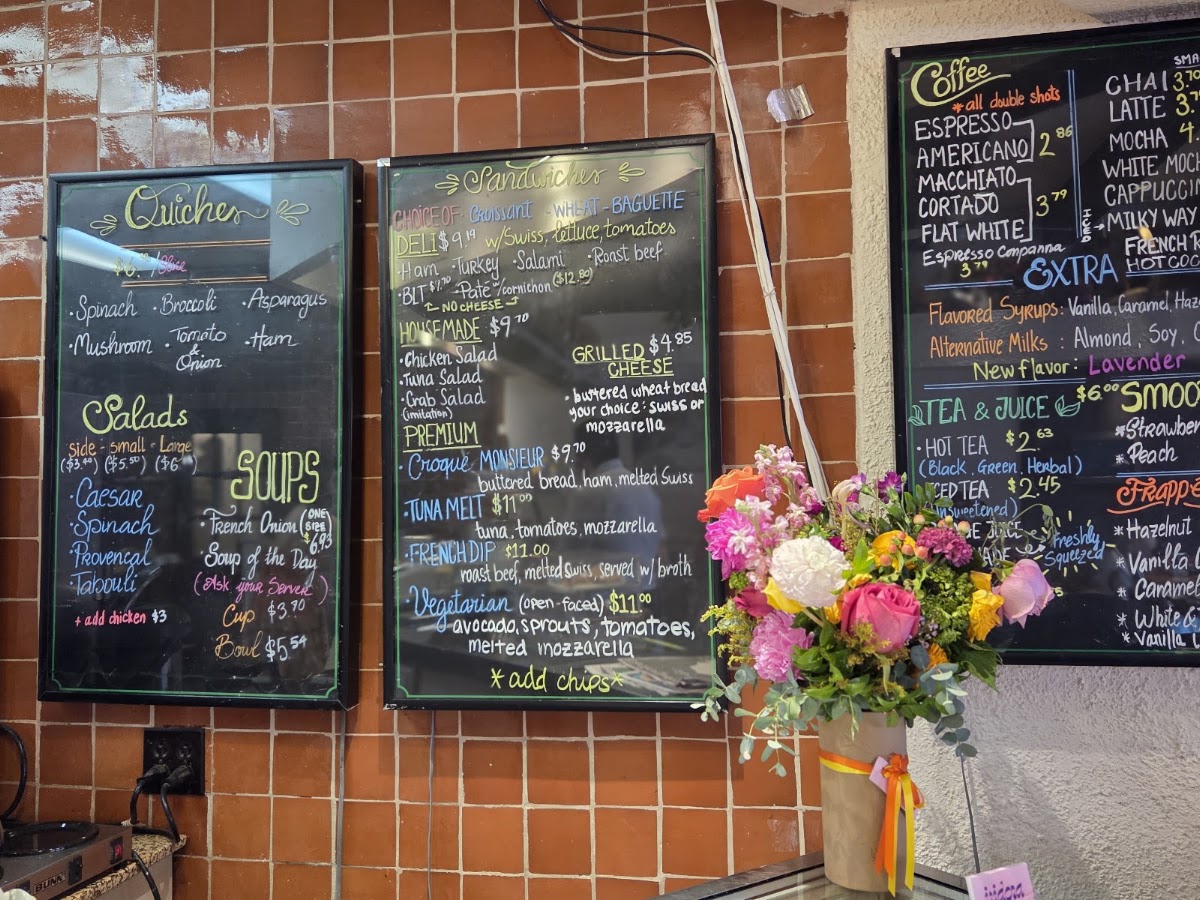 Quiches
/Slice
·Spinach ·Broccoli ·Asparagus
·Mushroom ·Tomato & Onion ·Ham
Salads
side - small - Large
($3.40) ($5.50) ($6
·Caesar
·Spinach
·Provençal
·Tabouli
+ add chicken $3
SOUPS
·French Onion (ONE SIZE $6.93
Soup of the Day
(Ask your Server)
Cup $3.70
Bowl $5.54
Sandwiches
CHOICE OF · Croissant - WHEAT - BAGUETTE
DELI $9.19 w/Swiss, lettuce, tomatoes
·Ham ·Turkey ·Salami ·Roast beef
·BLT ·Pate w/cornichon ($12.89)
NO CHEESE
HOUSEMADE $9.70
·Chicken Salad
·Tuna Salad
·Crab Salad
(imitation)
GRILLED $4.85
CHEESE
·buttered wheat bread
your choice: swiss or
mozzarella
PREMIUM
·Croque MONSIEUR $9.70
buttered bread, ham, melted Swiss
·TUNA MELT $11.00
tuna, tomatoes, mozzarella
·FRENCH DIP $11.00
roast beef, melted Swiss, served w/ broth
·Vegetarian (open-faced) $11.00
avocado, sprouts, tomatoes,
melted mozzarella
*add chips*
Coffee
*all double shots
ESPRESSO
AMERICANO 2.86
MACCHIATO
CORTADO 3.79
FLAT WHITE
Espresso Companna
3.79
CHAI 3.70
LATTE 3.7
MOCHA 4.
WHITE MOC
CAPPUCCIN
MILKY WAY
FRENCH
HOT COC
EXTRA
Flavored Syrups: Vanilla, Caramel, Haz
Alternative Milks : Almond, Soy,
New flavor: Lavender
TEA & JUICE
·HOT TEA $2.63
(Black, Green, Herbal)
ICED TEA $2.45
(unsweetened)
Freshly
Squeezed
$6.00 SMOO
*Strawber
*Peach
Frappé
*Hazelnut
*Vanilla
Carame
*White
*Vanilla